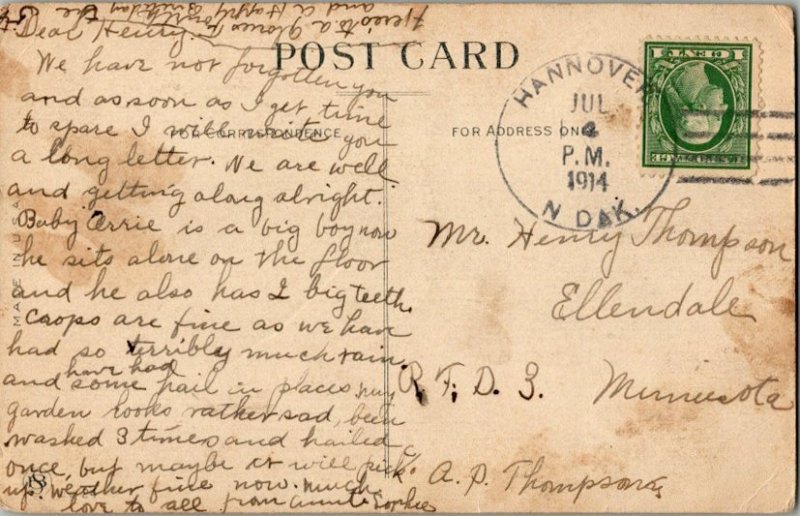 Here's to a Glorious Fourth
and a Happy Birthday
POST CARD
FOR CORRESPONDENCE
FOR ADDRESS ONLY
MADE IN U.S.A.
HANNOVER
JUL
4
P.M.
1914
N. DAK.
1 CENT 1
Dear Henry
We have not forgotten you
and as soon as I get time
to spare I will write you
a long letter. We are well
and getting along alright.
Baby Orrie is a big boy now
he sits alone on the floor
and he also has 2 big teeth.
Crops are fine as we have
had so terribly much rain
and have had some hail in places, my
garden looks rather sad, been
washed 3 times and hailed
once, but maybe it will pick
up. Weather fine now. Much
love to all from Aunt Sophie
Mr. Henry Thompson
Ellendale
R. F. D. 3. Minnesota
c/o A. P. Thompson